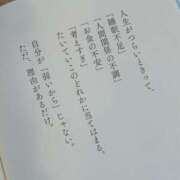 人生がつらいときって、
「睡眠不足」
「人間関係の不調」
「お金の不安」
「考えすぎ」
たいていこのどれかに当てはまる。
自分が「弱いから」じゃない。
ただ、理由があるだけ。